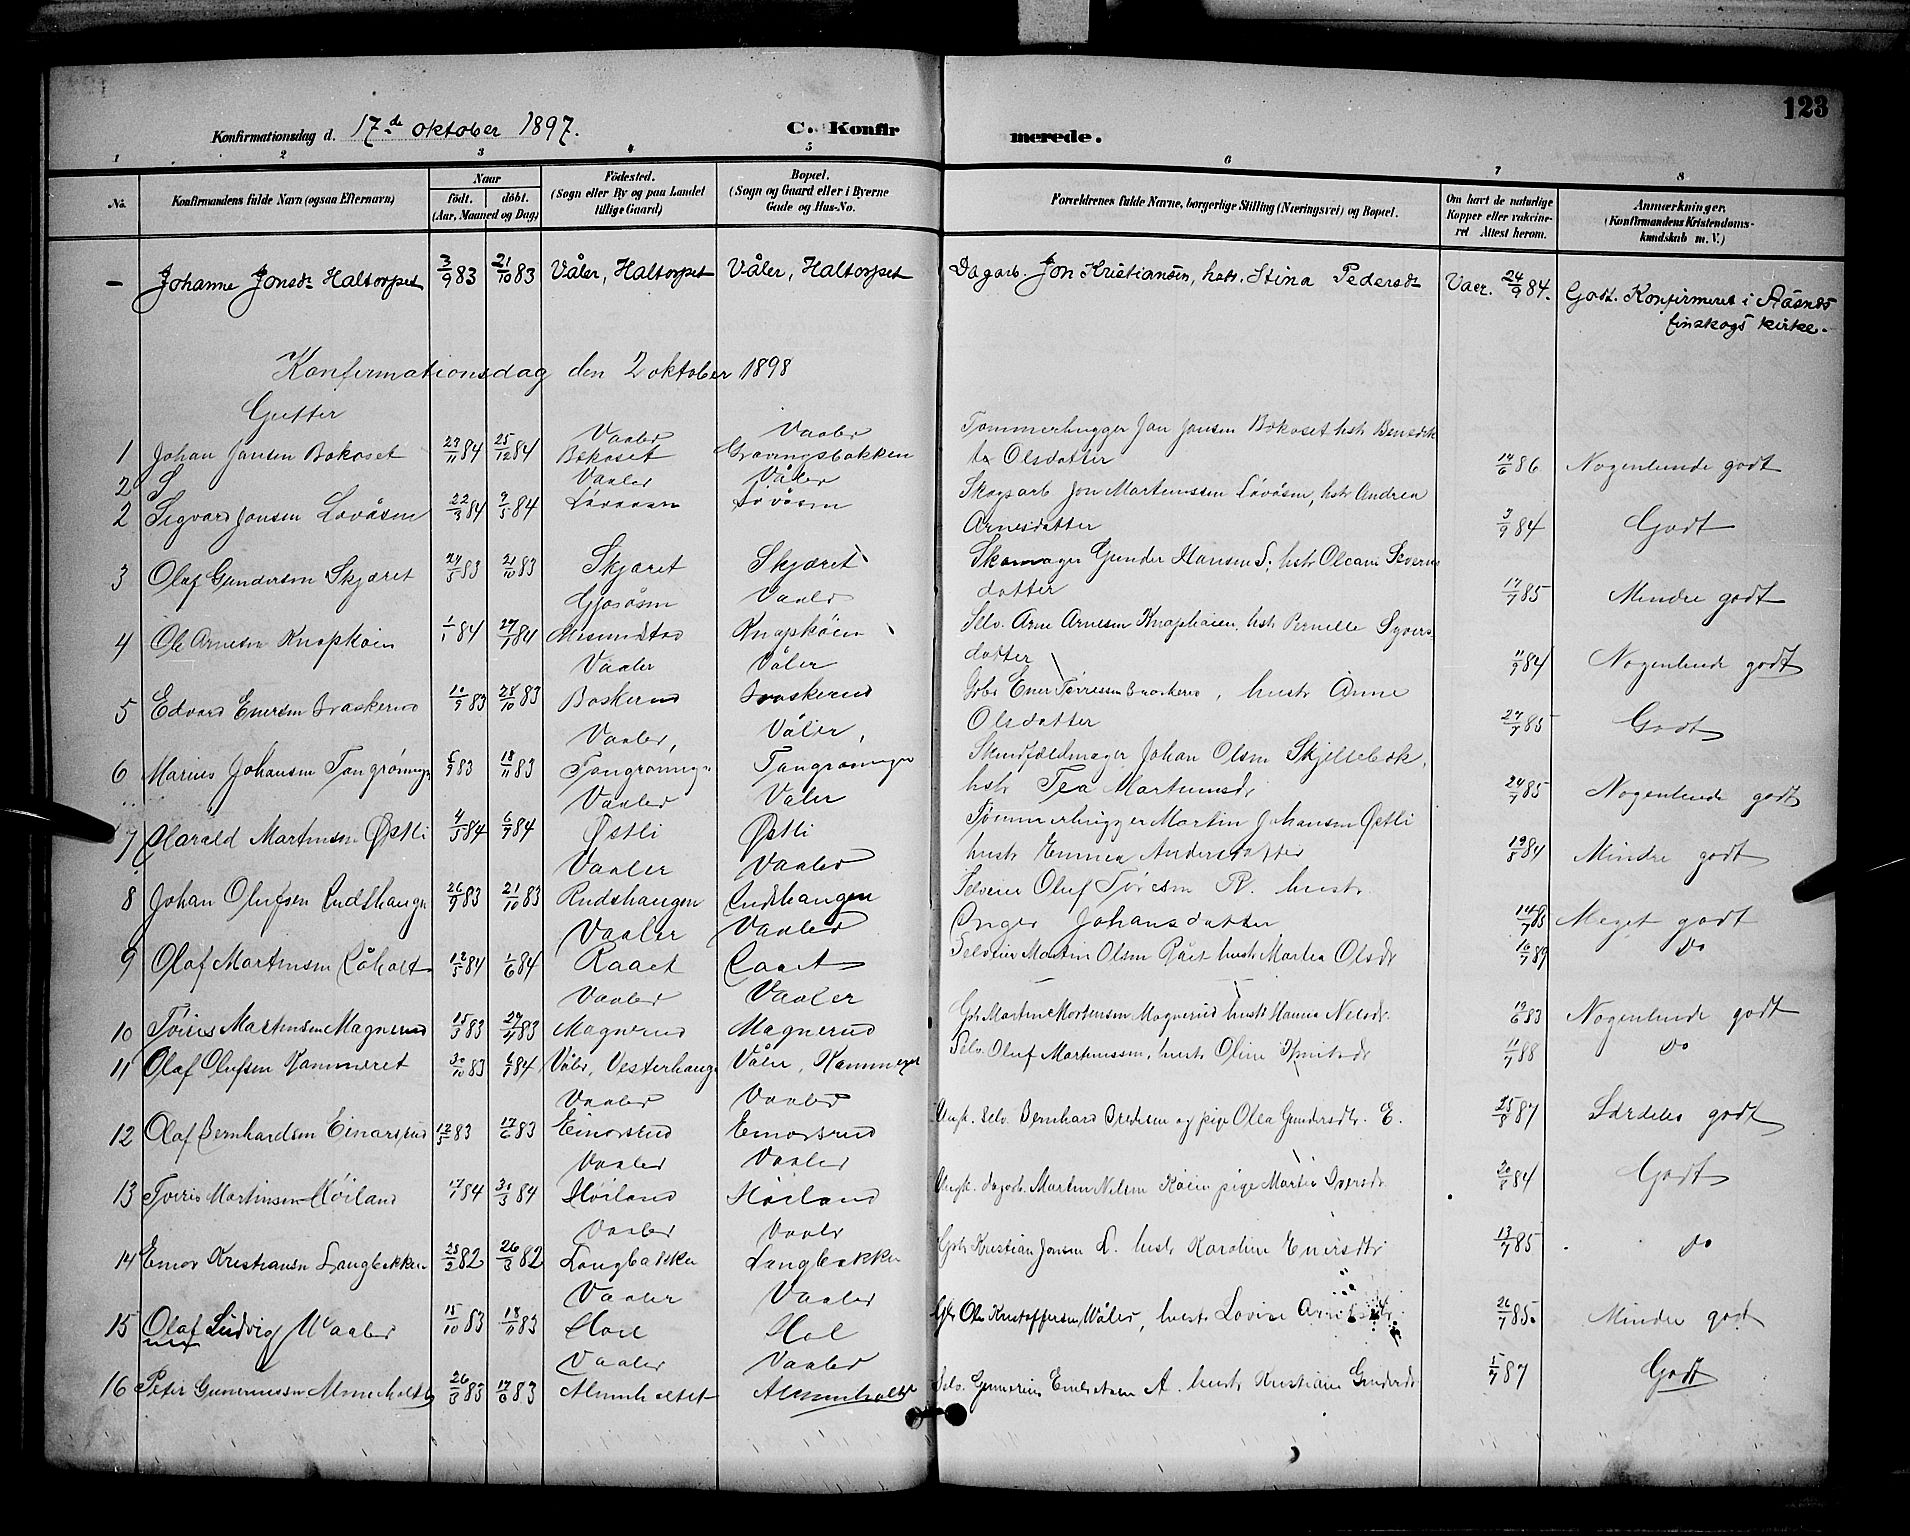 123
Konfirmationsdag d. 17de oktober 1897. C. Konfirmerede.
1 2 3 4 5 6 7 8
No. Konfirmandens fulde Navn (ogsaa Efternavn) Naar födt. döbt. (Aar, Maaned og Dag) Födested. (Sogn eller By og paa Landet tillige Gaard) Bopæl. (Sogn og Gaard eller i Byerne Gade og Hus-No. Forældrenes fulde Navne, borgerlige Stilling (Næringsvei) og Bopæl. Om havt de naturlige Kopper eller vakcineret Attest herom. Anmærkninger, (Konfirmandens Kristendomskundskab m. V.)
- Johanne Jonsdr Haltorpet 3/9 83 21/10 83 Våler, Haltorpet Våler, Haltorpet Dagarb. Jon Kristiansen, hstr. Stina Pedersdr Vacc. 24/9 84. Godt. Konfirmeret i Aasnes
finskogs kirke.
Konfirmationsdag den 2 oktober 1898
Gutter
Vaaler Vaaler Tømmerhugger Jon Jonsen Bokaset hstr Benedik
1 Johan Jonsen Bokaset 29/11 84 25/12 84 Bokaset Gravingsbakken te Olsdatter 14/6 86 Nogenlunde godt
2 S Vaaler Våler Skogsarb Jon Martinssen Lövåsen, hstr Andrea
2 Sigvard Jonsen Lövåsen 22/3 84 84 Lövaasen Lövåsen Arnesdatter 3/9 84 Godt
3 Olaf Gundersen Skjæret 24/5 83 21/10 83 Skjæret Skjæret Skomager Gunder Hansen S; hstr Oleane Severins
Gjesåsen Vaaler datter 17/7 85 Mindre godt
4 Ole Arnesen Knaphöien 1/1 84 27/1 84 Knaphöien Selv. Arne Arnesen Knaphöien, hstr Pernelle Syvers
Vaaler Våler datter 11/9 84 Nogenlunde godt
5 Edvard Enersen Braskerud 10/9 83 28/10 83 Baskerud Braskerud Gbr Ener Törresen Braskerud, hustr Anne
Vaaler, Våler, Olsdatter 27/7 85 Godt
6 Marius Johansen Tangröningen 6/9 83 18/11 83 Tangröningen Tangröningen Skindfældmager Johan Olsen Skjellebæk,
Vaaler Våler hstr Tea Martinusdr 24/7 85 Nogenlunde godt
7 Harald Martinsen Østli 4/5 84 6/7 84 Østli Østli Tømmerhugger Martin Johansen Østli
Vaaler Vaaler hustr Emma Andersdatter 19/8 84 Mindre godt
8 Johan Olufsen Rudshaugen 26/9 83 21/10 83 Rudshaugen Rudshaugen Selveier Oluf Töresen R. hustr
Vaaler Vaaler Inger Johansdatter 14/7 85 Meget godt
9 Olaf Martinsen Råholt 12/5 84 1/6 84 Raaet Raaet Selveier Martin Olsen Rået hustr Martea Olsdr 16/7 89 do
Vaaler Vaaler
10 Törris Martinsen Magnerud 15/3 83 29/4 83 Magnerud Magnerud Gbr Martin Mortensen Magnerud hustr Hanna Nelsdr 19/6 83 Nogenlunde godt
11 Olaf Olufsen Kammeret 30/10 83 6/1 84 Våler, Vesterhaug Våler, Kammeret Selv. Oluf Martinussen, hustr Oline Knutsdr 11/7 88 do
Vaaler Vaaler
12 Olaf Bernhardsen Einarsrud 12/5 83 17/6 83 Einarsrud Einarsrud Ungk. Selv. Bernhard Bredesen og pige Olea Gundersdr. E. 25/8 87 Særdeles godt
Vaaler Vaaler
13 Torris Martinsen Höiland 17/1 84 30/3 84 Höiland Höiland Ungk. dagarb. Martin Nilsen Köien pige Martea Iversdr 20/8 84 Godt
Vaaler Vaaler
14 Einar Kristiansen Langbakken 25/2 82 26/3 82 Langbakken Langbakken Gbr Kristian Jonsen L. hustr Karoline Enersdtr 13/7 85 do
Vaaler Vaaler
15 Olaf Ludvig Waaler 15/10 83 18/11 83 Hol Hol Gbr Ole Kristoffersen Våler, hustr Lovise 26/7 85. Mindre godt
Vaaler Vaaler
16 Peter Gunerussen Almenholtet 26/3 83 17/6 83 Almenholtet Almenholtet Selv. Gunerius A. hustr Kristiane Gundersdr 5/7 87 Godt